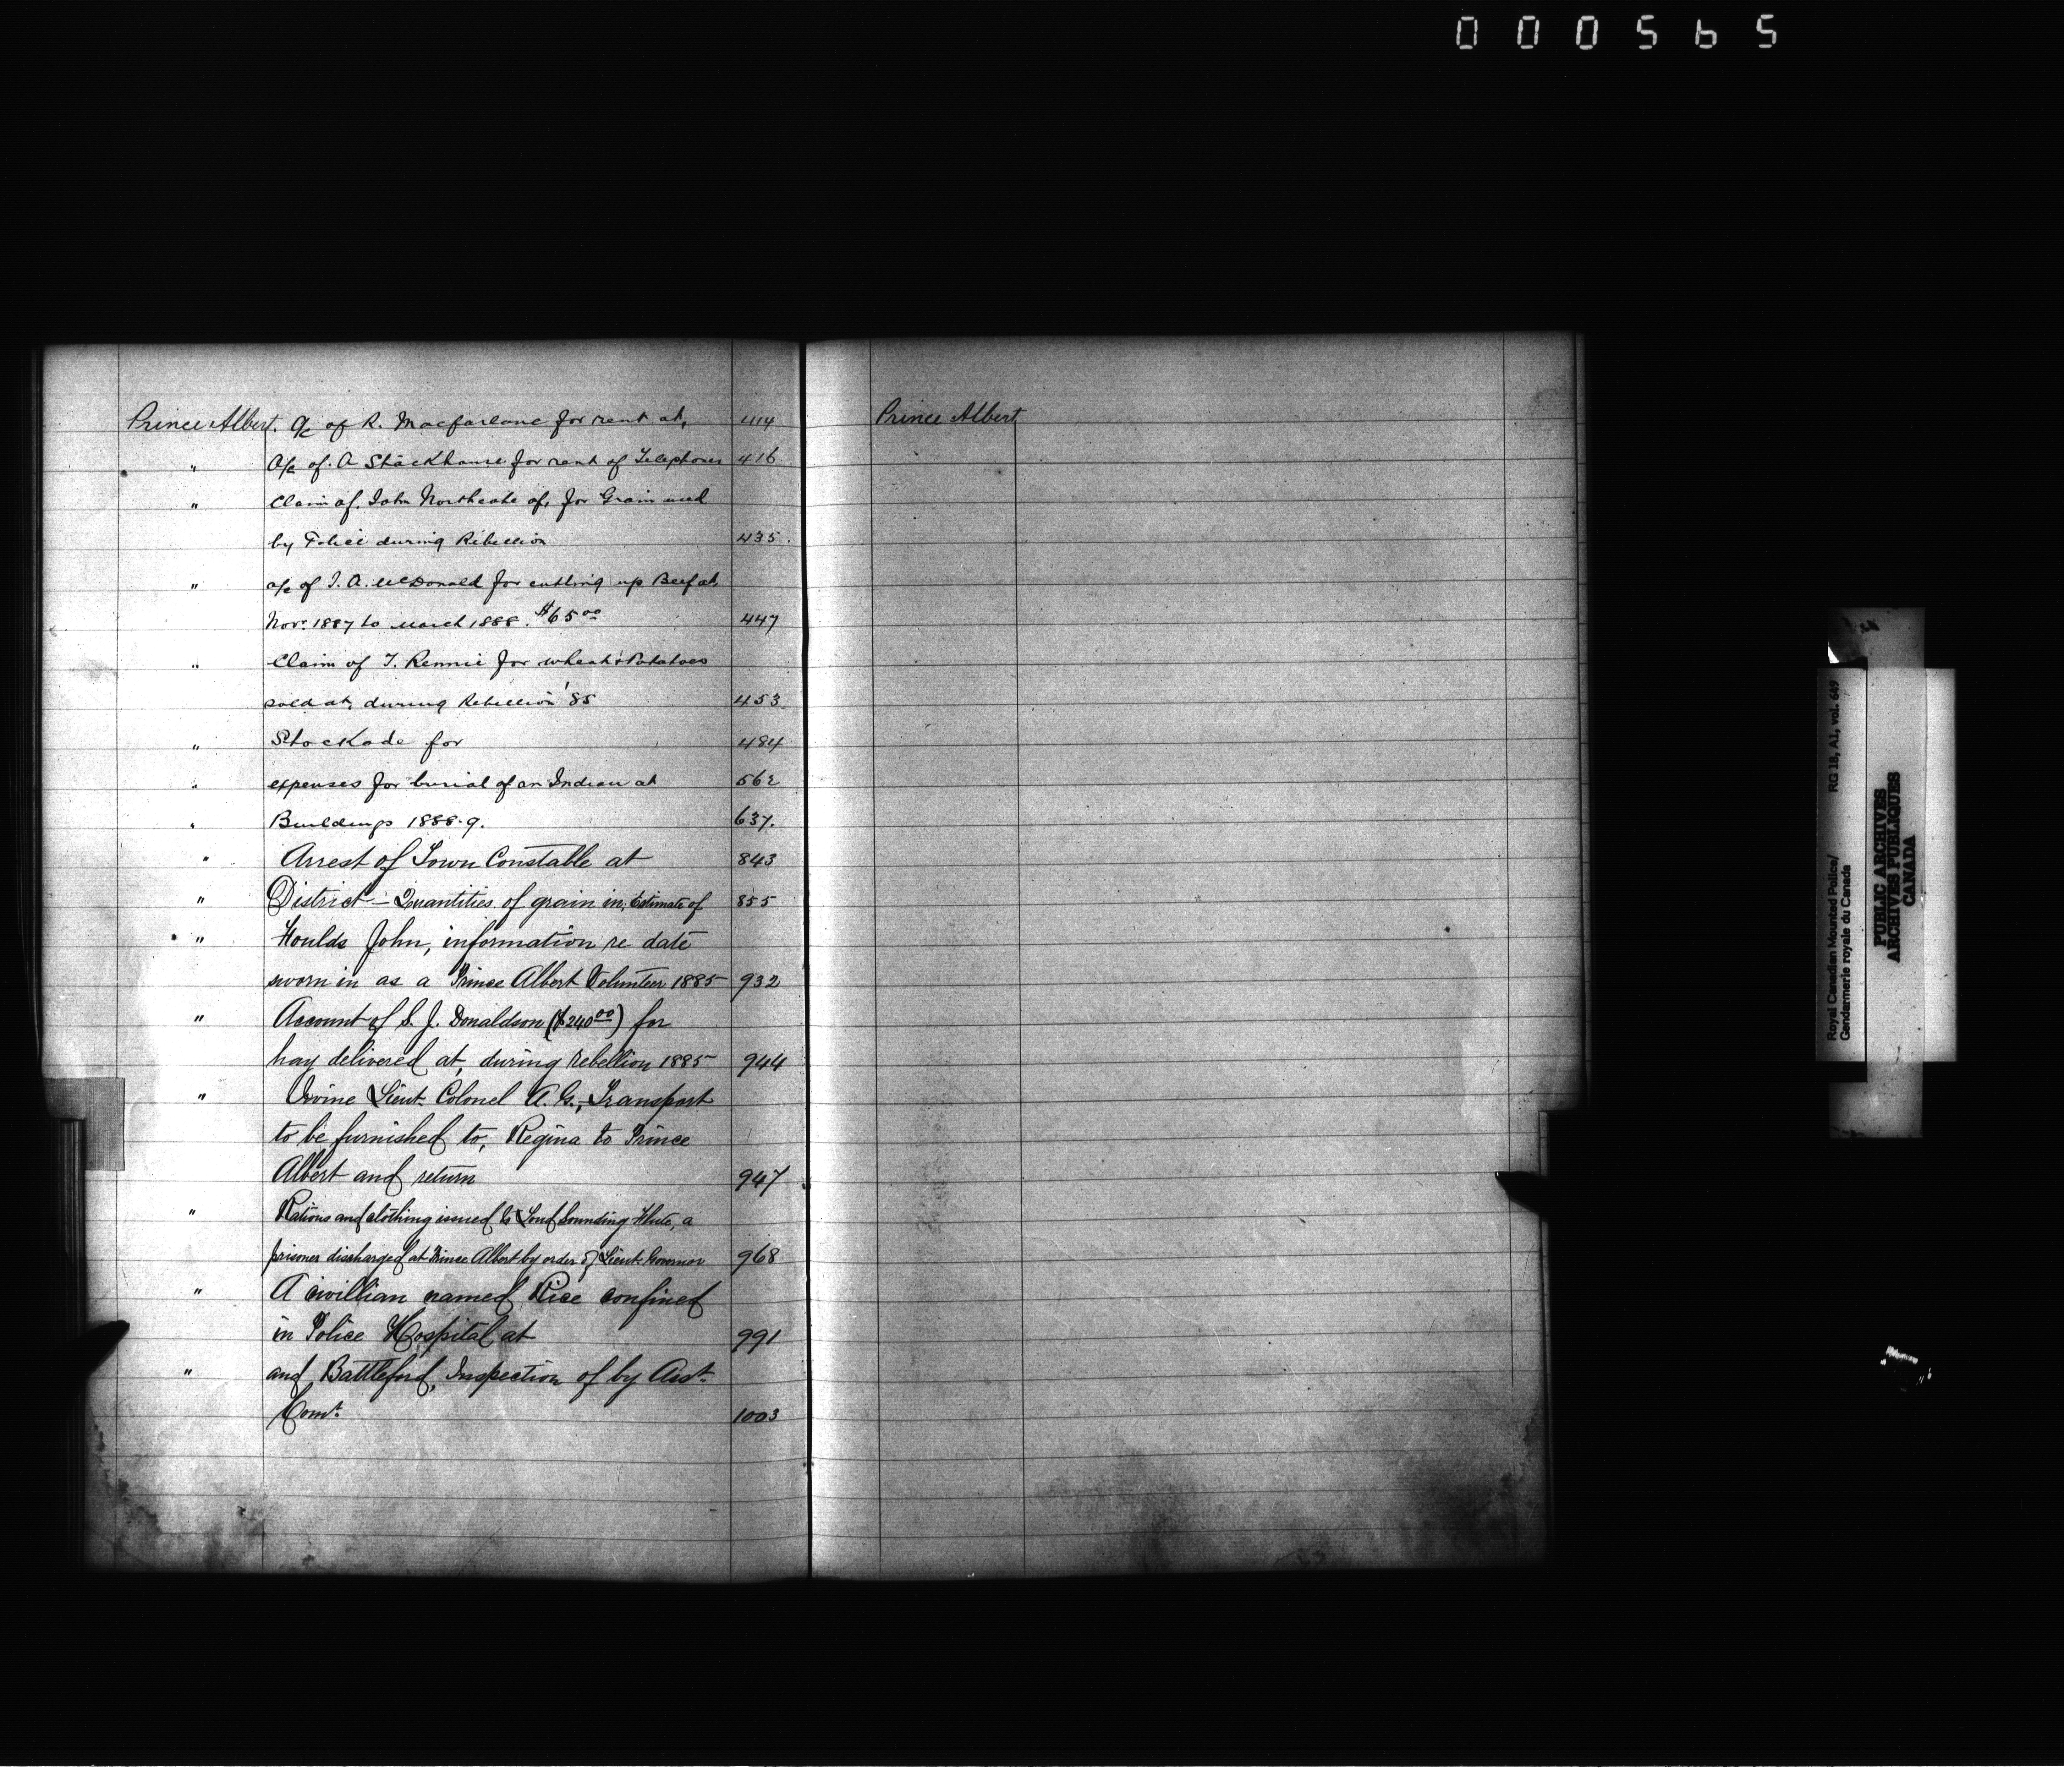 000565
Prince Albert. a/c of R. Macfarlane for rent at, 414
" a/c of A Stackhouse for rent of Telephones 416
" Claim of John Northcote of, for Grain used
by Police during Rebellion 435
" a/c of J. A. McDonald for cutting up Beef at,
Nov. 1887 to March 1888. $65 00 447
" Claim of T. Rennie for wheat & Potatoes
sold at, during Rebellion '85 453
" Stockade for 484
" expenses for burial of an Indian at 562
" Buildings 1888.9. 637.
" Arrest of Town Constable at 843
" District - Quantities of grain in, Estimate of 855
" Foulds John, information re date
sworn in as a Prince Albert Volunteer 1885 932
" Account of S. J. Donaldson ($240 00) for
hay delivered at, during rebellion 1885 944
" Irvine Lieut. Colonel A. G., - Transport
to be furnished to, Regina to Prince
Albert and return 947
" Rations and clothing issued to Loud Sounding Flute, a
prisoner discharged at Prince Albert by order of Lieut. Governor 968
" A civillian named Rice confined
in Police Hospital at 991
" and Battleford, Inspection of by Asst.
Comr. 1003
Prince Albert
Royal Canadian Mounted Police/ RG 18, A1, vol. 649
Gendarmerie royale du Canada
PUBLIC ARCHIVES
ARCHIVES PUBLIQUES
CANADA